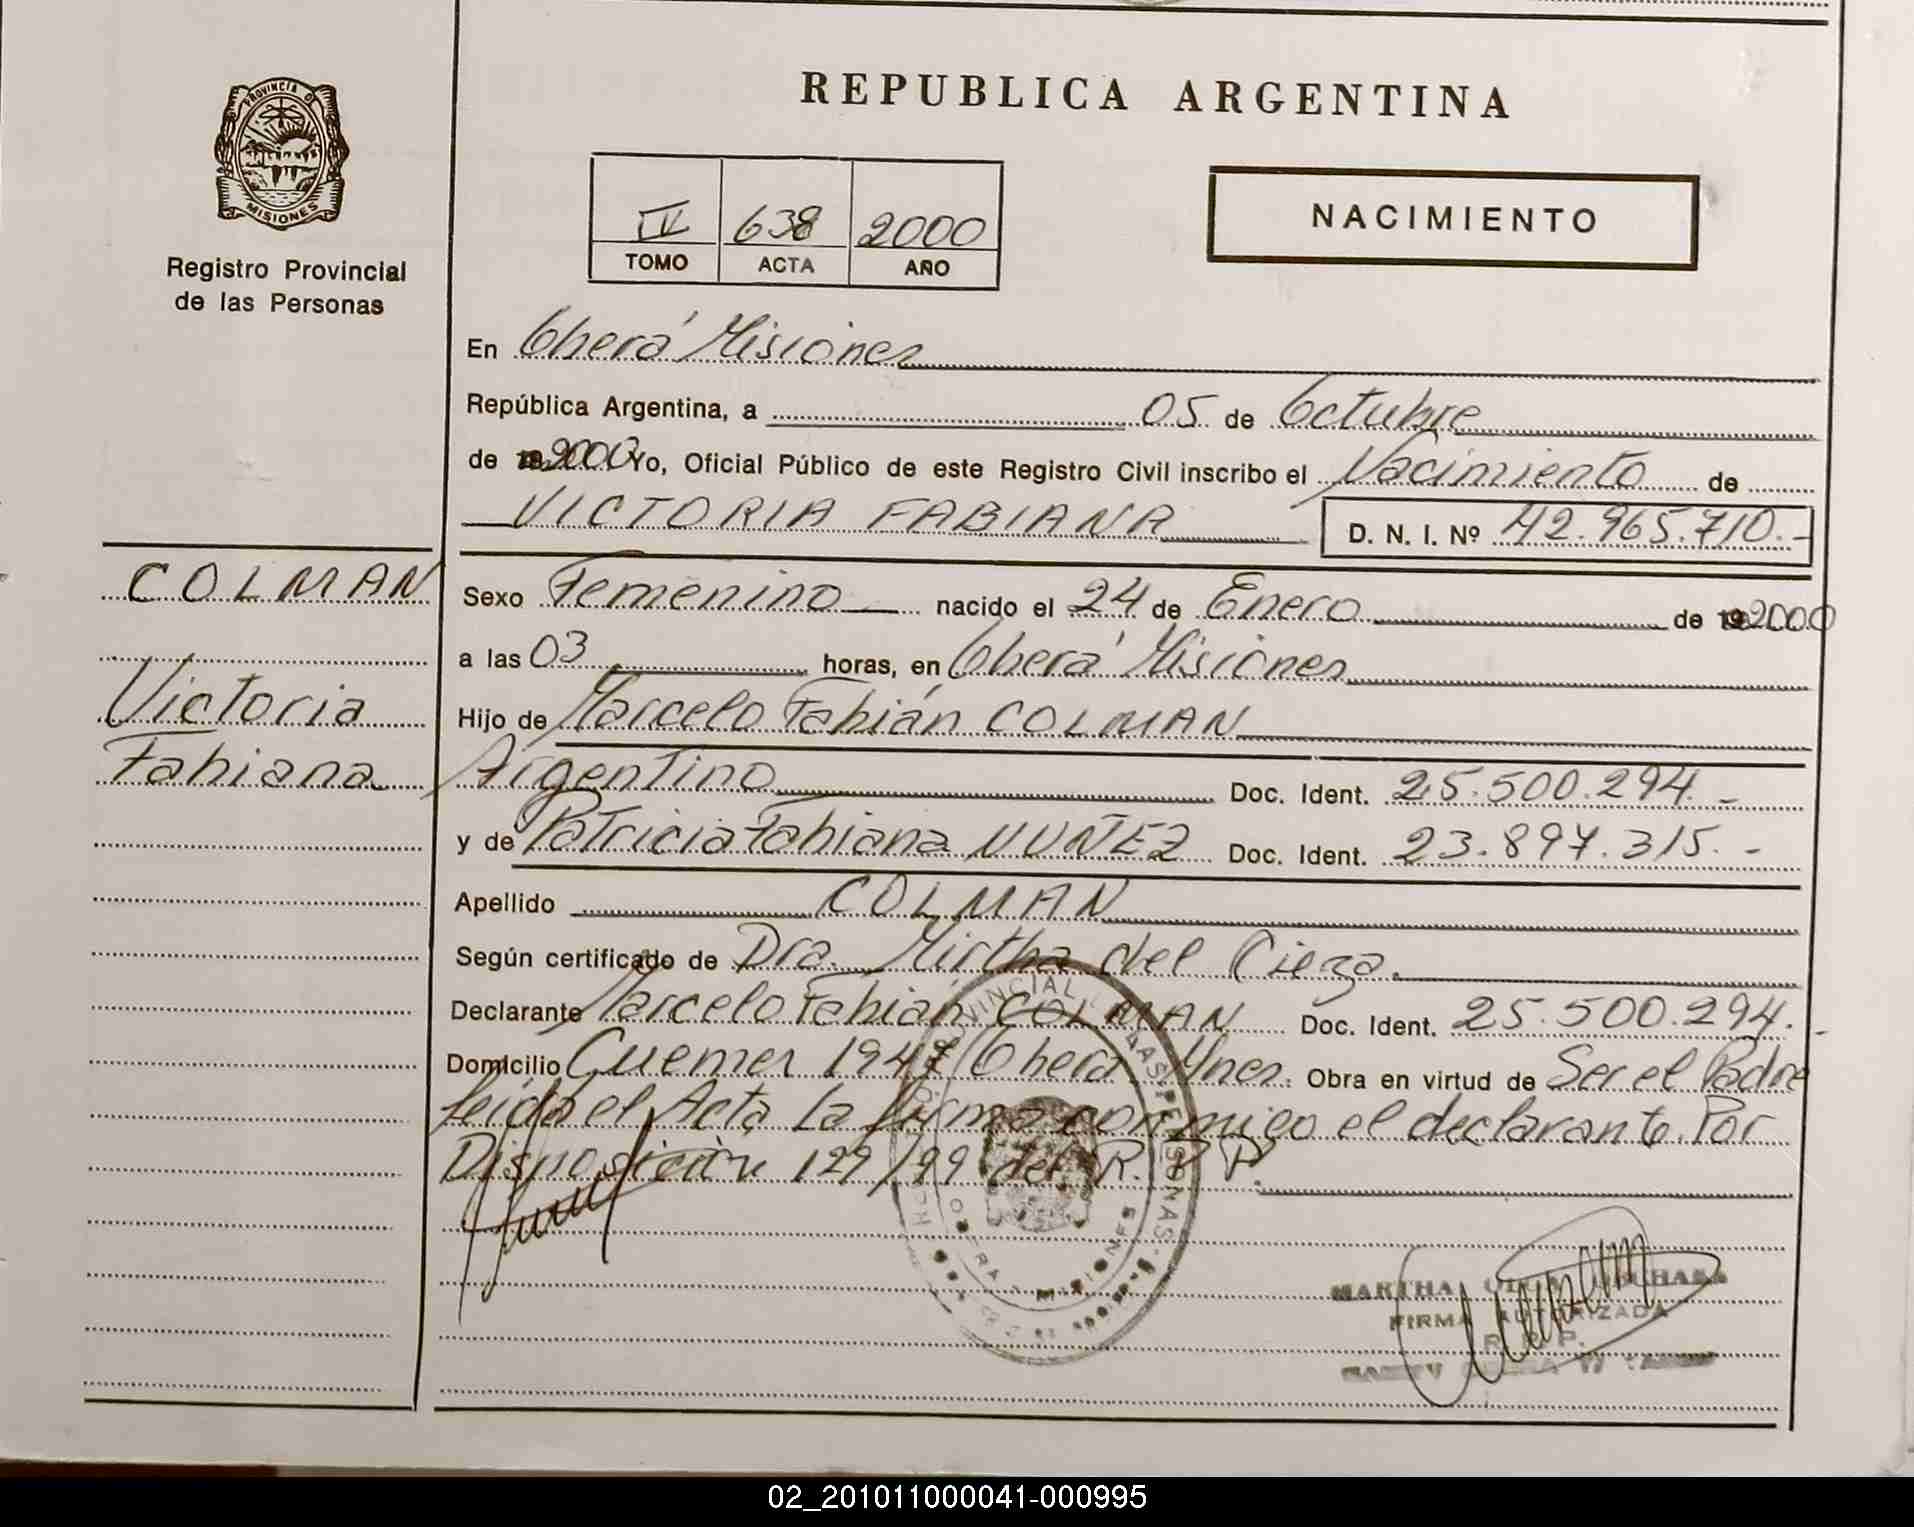 PROVINCIA D
MISIONES
Registro Provincial
de las Personas
COLMAN
Victoria
Fabiana
REPUBLICA ARGENTINA
IV 638 2000
TOMO ACTA AÑO
NACIMIENTO
En Oberá Misiones
República Argentina, a 05 de Octubre
de 2000 Yo, Oficial Público de este Registro Civil inscribo el Nacimiento de
VICTORIA FABIANA D. N. I. Nº 42.965.710.-
Sexo Femenino nacido el 24 de Enero de 2000
a las 03 horas, en Oberá Misiones
Hijo de Marcelo Fabián COLMAN
Argentino Doc. Ident. 25.500.294.-
y de Patricia Fabiana NUÑEZ Doc. Ident. 23.897.315.-
Apellido COLMAN
Según certificado de Dra. Mirtha del Cieza.
Declarante Marcelo Fabián COLMAN Doc. Ident. 25.500.294.-
Domicilio Guemes 1947 Oberá Mnes. Obra en virtud de Ser el Padre
Leida el Acta La firma conmigo el declarante. Por
Disposición 129/99 del R. P. P.
MARTHA
FIRMA AUTORIZADA
R. P. P.
02_201011000041-000995